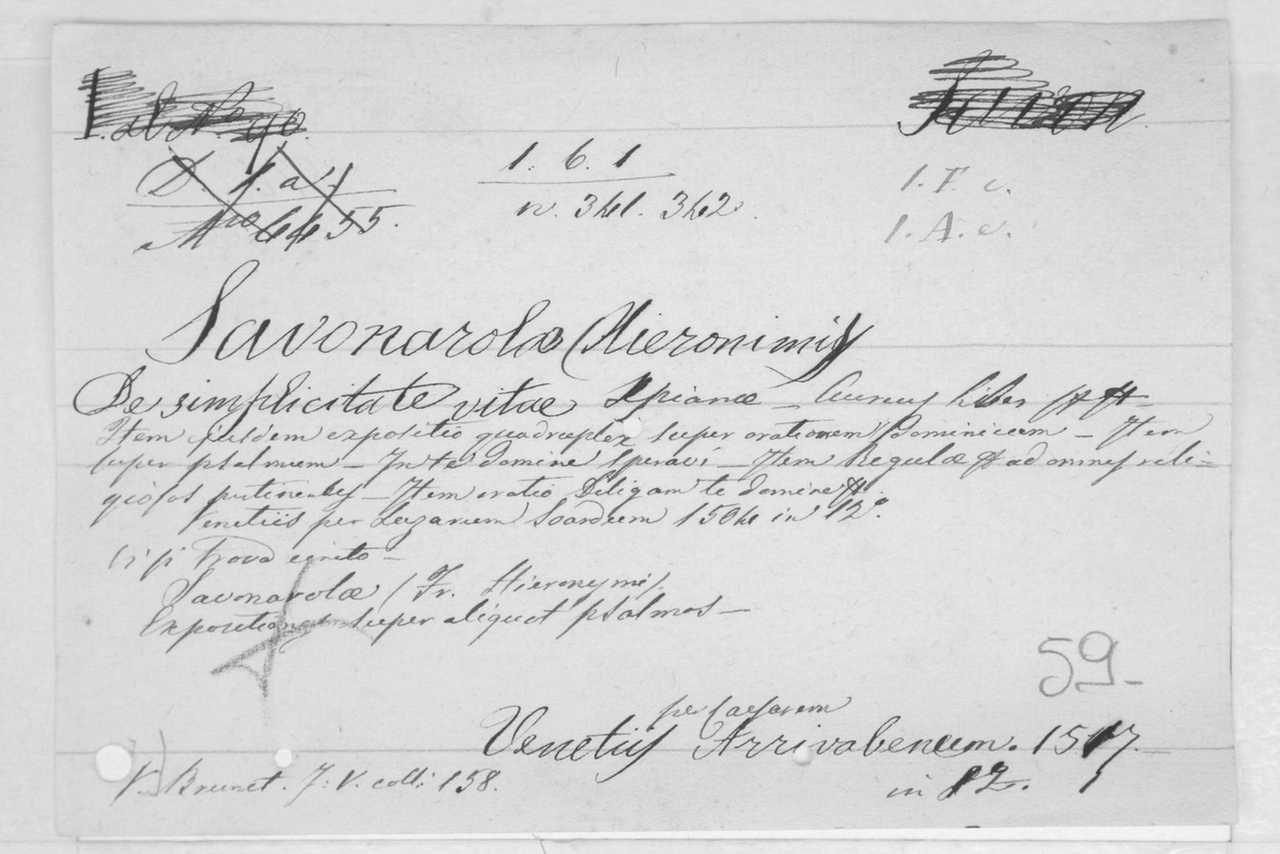 D. 1. a.
N.ro 6455.
1. 6. 1
n. 341. 342.
1. F. c.
1. A. c.
Savonarolæ (Hieronimi)
De simplicitate vitæ Xpianæ - Aureus liber
Item ejusdem expositio quadruplex super orationem Dominicum - Item
super psalmum - In te domine speravi - Item Regulæ ad omnes reli-
giosos pertinentes - Item oratio Diligam te domine
Venetiis per Lazarum Soardum 1504 in 12.o
Ci si trova unito -
Savonarolæ (Fr. Hieronymi).
Expositiones super aliquot psalmos -
59-
per Cæsarem
Venetiis Arrivabenum. 1517.
in 12.
V. Brunet. T. V. coll: 158.